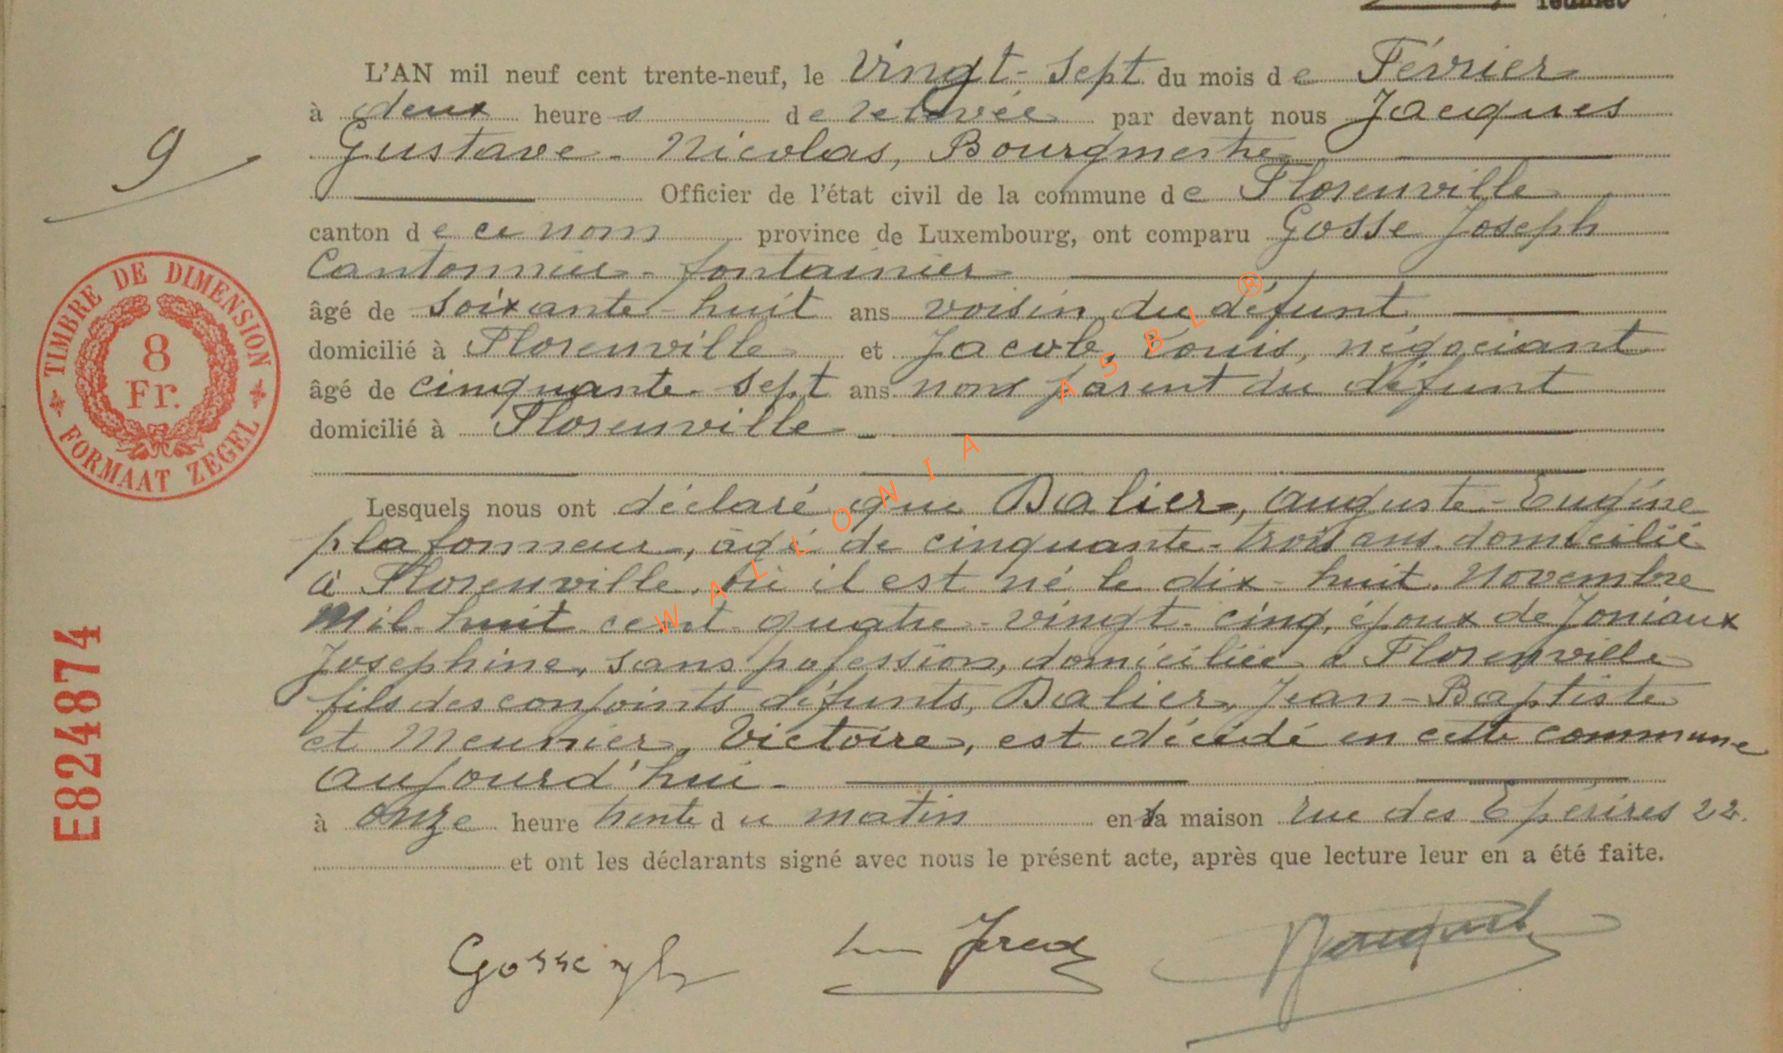 feuillet
L'AN mil neuf cent trente-neuf, le vingt-sept du mois de Février
à deux heures de relevée par devant nous Jacques
9
Gustave-Nicolas, Bourgmestre
Officier de l'état civil de la commune de Florenville
canton de ce nom province de Luxembourg, ont comparu Gosse Joseph
Cantonnier-fontainier
âgé de soixante-huit ans voisin du défunt
domicilié à Florenville et Jacob, Louis, négociant
âgé de cinquante-sept ans non parent du défunt
domicilié à Florenville
Lesquels nous ont déclaré que Dalier, Auguste-Eugène
plafonneur, âgé de cinquante-trois ans domicilié
à Florenville, où il est né le dix-huit Novembre
Mil huit cent quatre-vingt-cinq, époux de Joniaux
Josephine, sans pofession, domiciliée à Florenville
fils des conjoints défunts, Dalier, Jean-Baptiste
et Meunier, Victoire, est décédé en cette commune
aujourd'hui-
à onze heure trente du matin en sa maison rue des Epérires 22.
et ont les déclarants signé avec nous le présent acte, après que lecture leur en a été faite.
Gosse
TIMBRE DE DIMENSION
8
Fr.
FORMAAT ZEGEL
E824874
WALLONIA ASBL ®